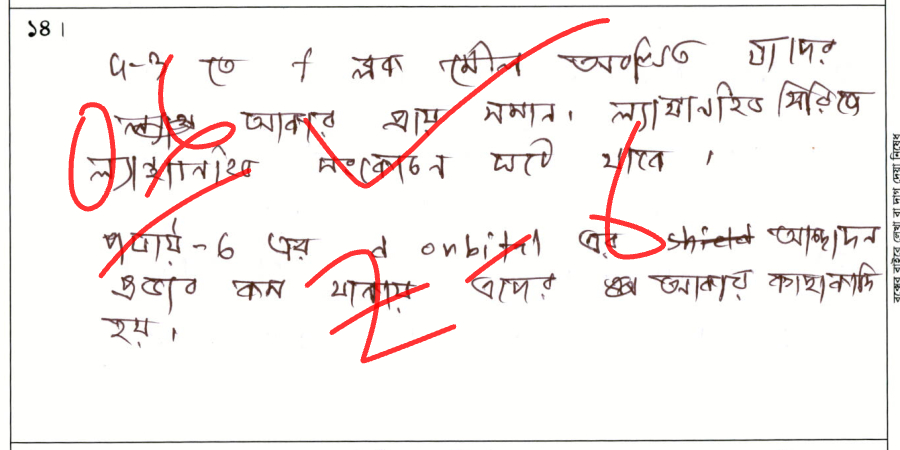 ১৪।
তে f ব্লক মৌল অবস্থিত যাদের
আকার প্রায় সমান। ল্যান্থানাইড সিরিজে
ল্যান্থানাইড সংকোচন ঘটে থাকে ।
পর্যায়-6 এর d orbital এর shield আচ্ছাদন
প্রভাব কম থাকায় এদের আকার কাছাকাছি
হয়।
বক্সের বাইরে লেখা বা দাগ দেয়া নিষেধ